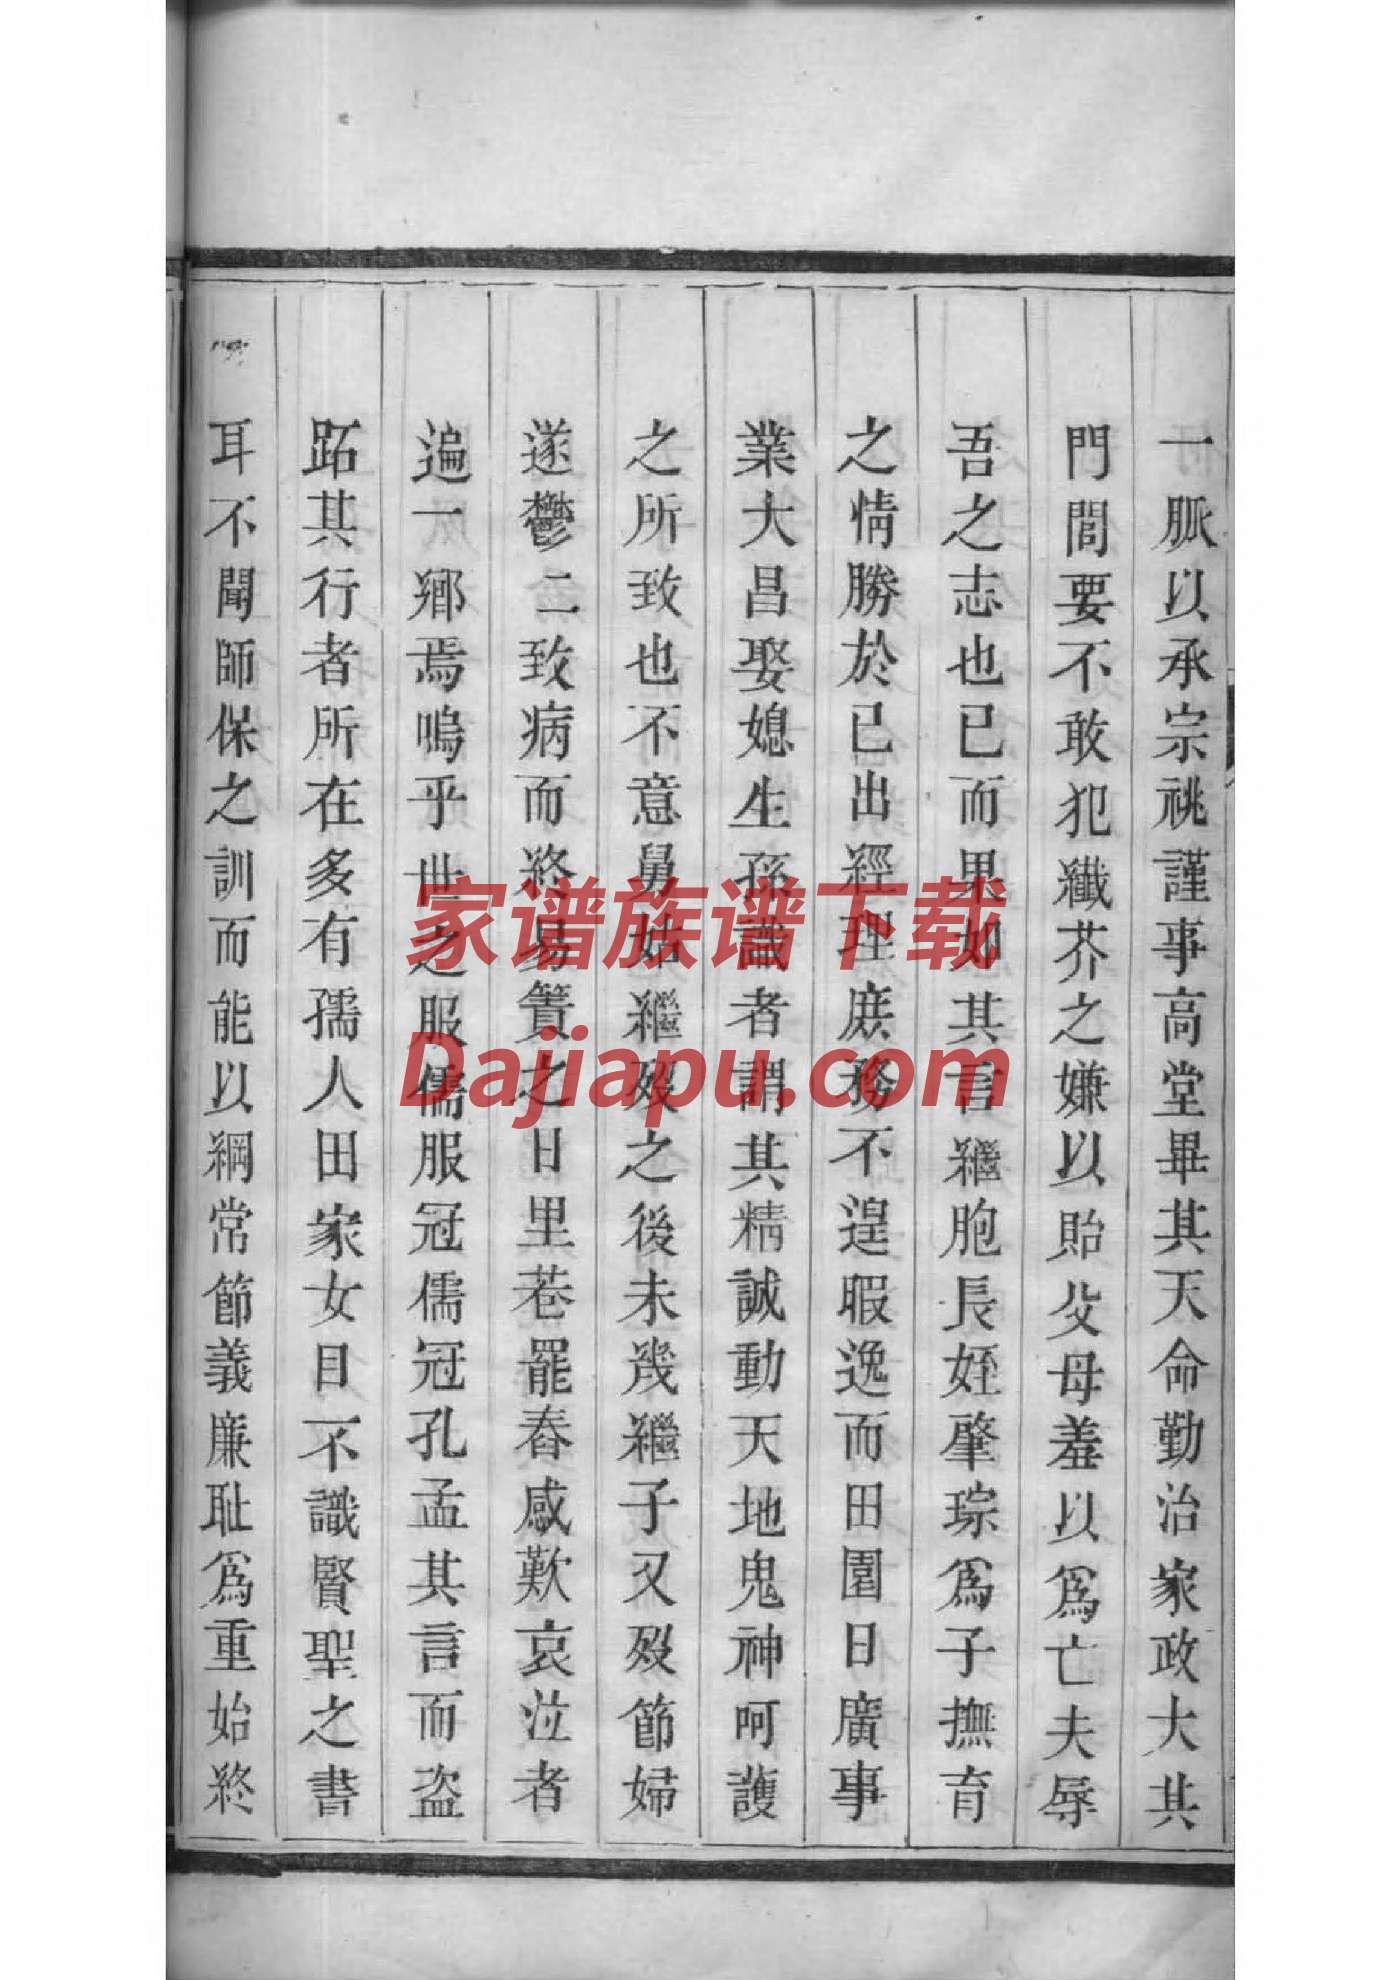 一脈以承宗祧謹事高堂畢其天命勤治家政大其
門閭要不敢犯纖芥之嫌以貽父母羞以爲亡夫辱
吾之志也已而果如其言繼胞長姪肇琮爲子撫育
之情勝於已出經理庶務不遑暇逸而田園日廣事
業大昌娶媳生孫識者謂其精誠動天地鬼神呵護
之所致也不意舅姑繼殁之後未幾繼子又殁節婦
遂鬱二致病而終易簀之日里巷罷舂感歎哀泣者
遍一鄉焉嗚乎世之服儒服冠儒冠孔孟其言而盜
跖其行者所在多有孺人田家女目不識賢聖之書
耳不聞師保之訓而能以綱常節義廉耻爲重始終
家谱族谱下载
Dajiapu.com